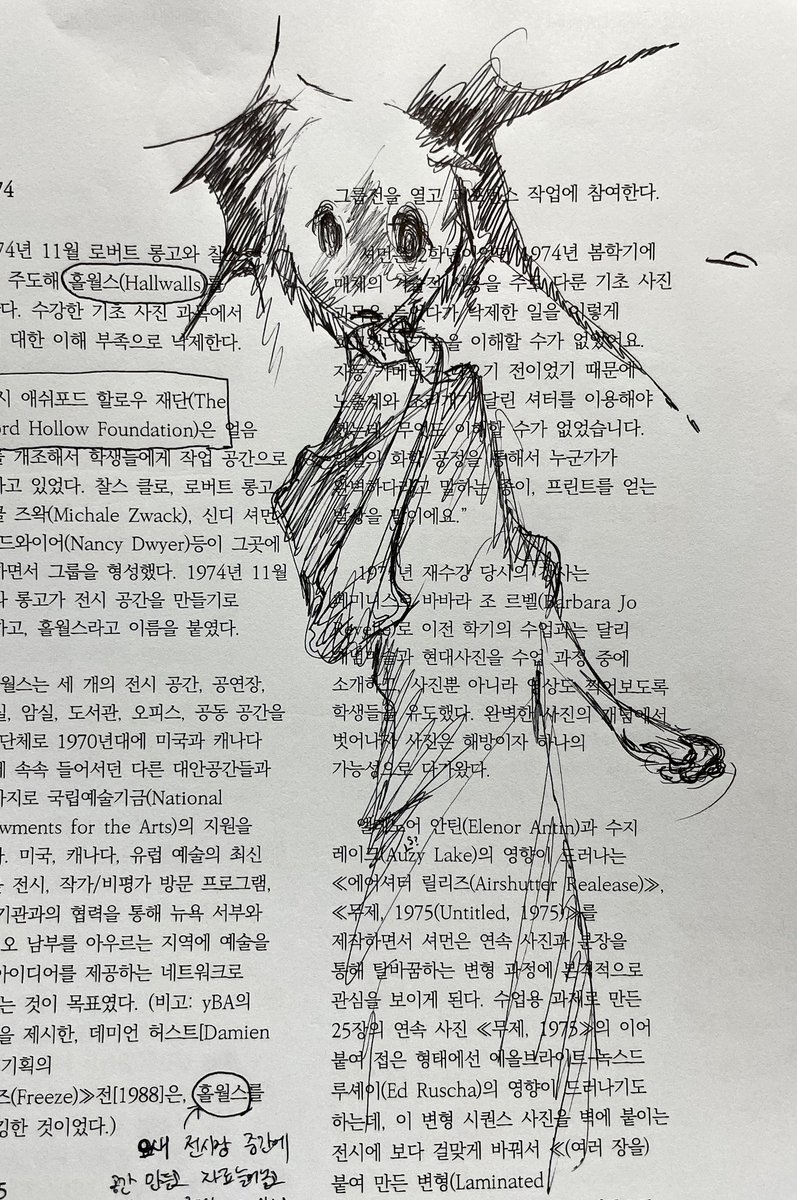 74
74년 11월 로버트 롱고와 찰스
주도해 홀월스(Hallwalls)를
다. 수강한 기초 사진 과목에서
대한 이해 부족으로 낙제한다.
시 애쉬포드 할로우 재단(The
ord Hollow Foundation)은 얼음
를 개조해서 학생들에게 작업 공간으로
하고 있었다. 찰스 클로, 로버트 롱고,
클 즈왁(Michale Zwack), 신디 셔먼,
드와이어(Nancy Dwyer)등이 그곳에
하면서 그룹을 형성했다. 1974년 11월
롱고가 전시 공간을 만들기로
하고, 홀월스라고 이름을 붙였다.
월스는 세 개의 전시 공간, 공연장,
실, 암실, 도서관, 오피스, 공동 공간을
단체로 1970년대에 미국과 캐나다
에 속속 들어서던 다른 대안공간들과
가지로 국립예술기금(National
owments for the Arts)의 지원을
다. 미국, 캐나다, 유럽 예술의 최신
전시, 작가/비평가 방문 프로그램,
기관과의 협력을 통해 뉴욕 서부와
오 남부를 아우르는 지역에 예술을
아이디어를 제공하는 네트워크로
는 것이 목표였다. (비고: yBA의
을 제시한, 데미언 허스트[Damien
기획의
즈(Freeze)》전[1988]은, 홀월스를
킹한 것이었다.)
전시장 중간에
공간 만들고
5
그룹전을 열고 퍼포먼스 작업에 참여한다.
셔먼은 2학년이었던 1974년 봄학기에
매체의 기술적 사용을 주로 다룬 기초 사진
과목을 듣다가 낙제한 일을 이렇게
회고했다. 기술을 이해할 수가 없었어요.
자동 카메라가 나오기 전이었기 때문에
노출계와 조리개가 달린 셔터를 이용해야
했는데 무엇도 이해할 수가 없었습니다.
암실의 화학 공정을 통해서 누군가가
완벽하다라고 말하는 종이, 프린트를 얻는
발상을 말이에요."
1975년 재수강 당시의 강사는
페미니스트 바바라 조 르벨(Barbara Jo
Revelle)로 이전 학기의 수업과는 달리
개념미술과 현대사진을 수업 과정 중에
소개하고, 사진뿐 아니라 영상도 찍어보도록
학생들을 유도했다. 완벽한 사진의 개념에서
벗어나자 사진은 해방이자 하나의
가능성으로 다가왔다.
엘레노어 안틴(Elenor Antin)과 수지
레이크(Auzy Lake)의 영향이 드러나는
《에어셔터 릴리즈(Airshutter Realease)》,
《무제, 1975(Untitled, 1975)》를
제작하면서 셔먼은 연속 사진과 분장을
통해 탈바꿈하는 변형 과정에 본격적으로
관심을 보이게 된다. 수업용 과제로 만든
25장의 연속 사진 《무제, 1975》의 이어
붙여 접은 형태에선 에올브라이트-녹스드
루셰이(Ed Ruscha)의 영향이 드러나기도
하는데, 이 변형 시퀀스 사진을 벽에 붙이는
전시에 보다 걸맞게 바꿔서 《(여러 장을)
붙여 만든 변형(Laminated